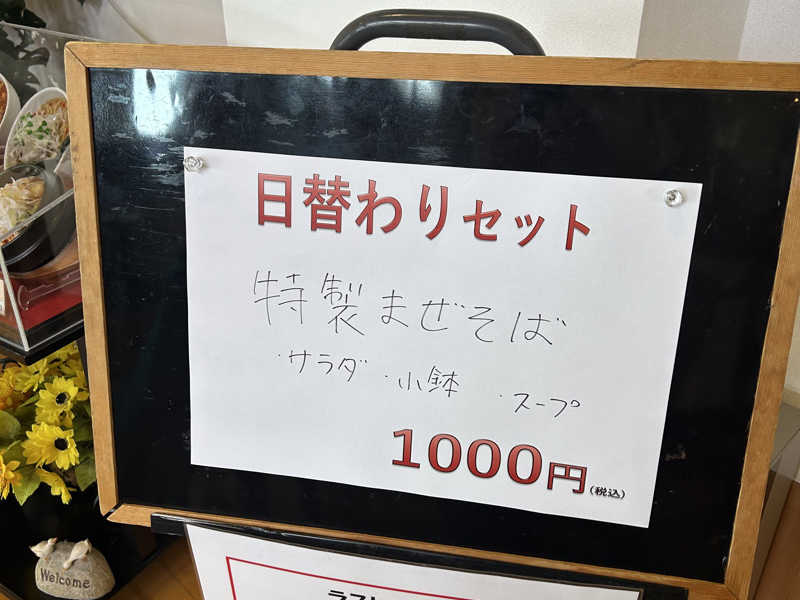 日替わりセット
特製まぜそば
・サラダ ・小鉢 ・スープ
1000円(税込)
Welcome